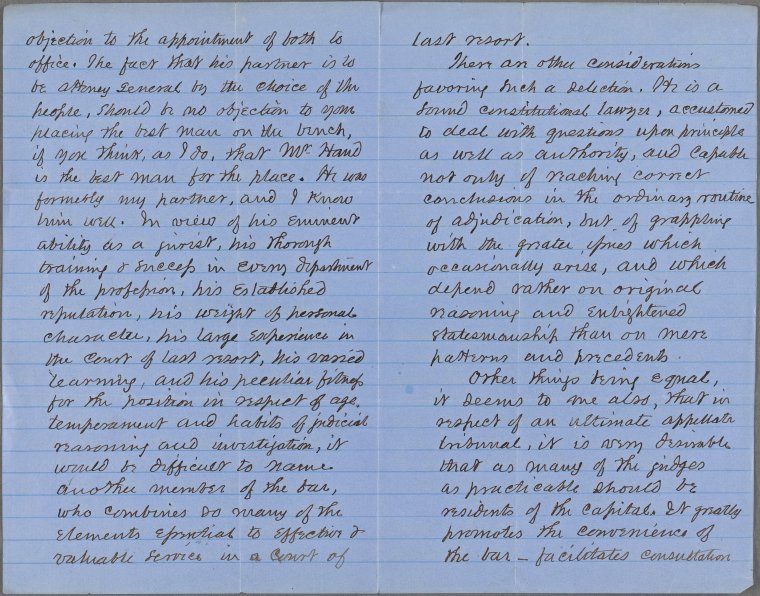 objection to the appointment of both to
office. The fact that his partner is to
be attorney General by the choice of the
people, should be no objection to your
placing the best man on the bench,
if you think, as I do, that Mr. Hand
is the best man for the place. He was
formerly my partner, and I know
him well. In view of his eminent
ability as a jurist, his thorough
training & success in every department
of the profession, his established
reputation, his weight of personal
character, his large experience in
the court of last resort, his varied
learning, and his peculiar fitness
for the position in respect of age,
temperament and habits of judicial
reasoning and investigation, it
would be difficult to name
another member of the bar,
who combines so many of the
elements essential to effective &
valuable service in a court of
last resort.
There are other considerations
favoring such a selection. He is a
sound constitutional lawyer, accustomed
to deal with questions upon principle
as well as authority, and capable
not only of reaching correct
conclusions in the ordinary routine
of adjudication, but of grappling
with the greater issues which
occasionally arise, and which
depend rather on original
reasoning and enlightened
statesmanship than on mere
patterns and precedents.
Other things being equal,
it seems to me also, that in
respect of an ultimate appellate
tribunal, it is very desirable
that as many of the judges
as practicable should be
residents of the capital. It greatly
promotes the convenience of
the bar – facilitates consultation